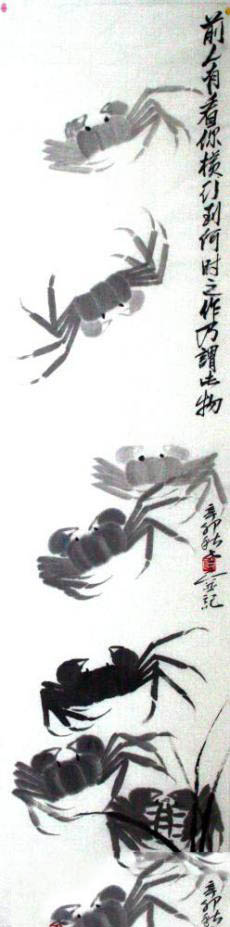 前人有看你横行到何时之作乃谓此物
辛卯秋
记
辛卯秋